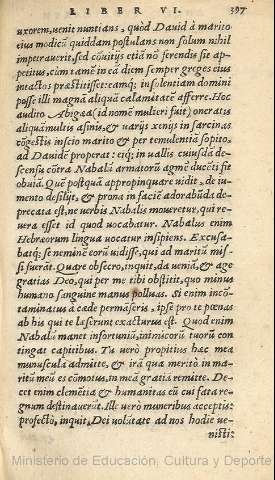 LIBER VI. 397
uxorem, uenit nuntians, quòd Dauid à marito
eius modicũ quiddam postulans non solum nihil
impetrauerit, sed cõuitijs etiã nõ ferendis sit ap-
petitus, cùm tamẽ in eã diem semper greges eius
intactos præstitisset: eamq; insolentiam domini
posse illi magnã aliquã calamitatẽ afferre. Hoc
audito Abigæa (id nomẽ mulieri fuit) oneratis
aliquã multis asinis, & uarijs xenijs in sarcinas
cõgestis inscio marito & per temulentiã sopito,
ad Dauidẽ properat: eiq; in uallis cuiusdã de-
scensu cõtra Nabalũ armatorũ agmẽ ducẽti fit
obuiã. Quẽ postquã appropinquare uidit, de iu-
mento desilijt, & prona in faciẽ adorabũda de-
precata est, ne uerbis Nabalis moueretur, qui re-
uera esset id quod uocabatur. Nabalus enim
Hebræorum lingua uocatur insipiens. Excusa-
batq; se neminẽ eorũ uidisse, quos ad maritũ mis-
si fuerãt. Quare obsecro, inquit, da ueniã, & age
gratias Deo, qui per me tibi obstitit, quo minus
humano sanguine manus polluas. Si enim incõ-
taminatus à cæde permãseris, ipse pro te pœnas
ab his qui te læserunt exacturus est. Quod enim
Nabalũ manet infortuniũ, inimicorũ tuorũ con
tingat capitibus. Tu uerò propitius hæc mea
munuscula admitte, & irã qua meritò in mari-
tũ meũ es cõmotus, in meã gratiã remitte. De-
cet enim clemẽtia & humanitas eũ cui fata re-
gnum destinauerũt. Ille uerò muneribus acceptis:
profectò, inquit, Dei uolũtate ad nos hodie ue-
nisti:
Ministerio de Educación, Cultura y Deporte